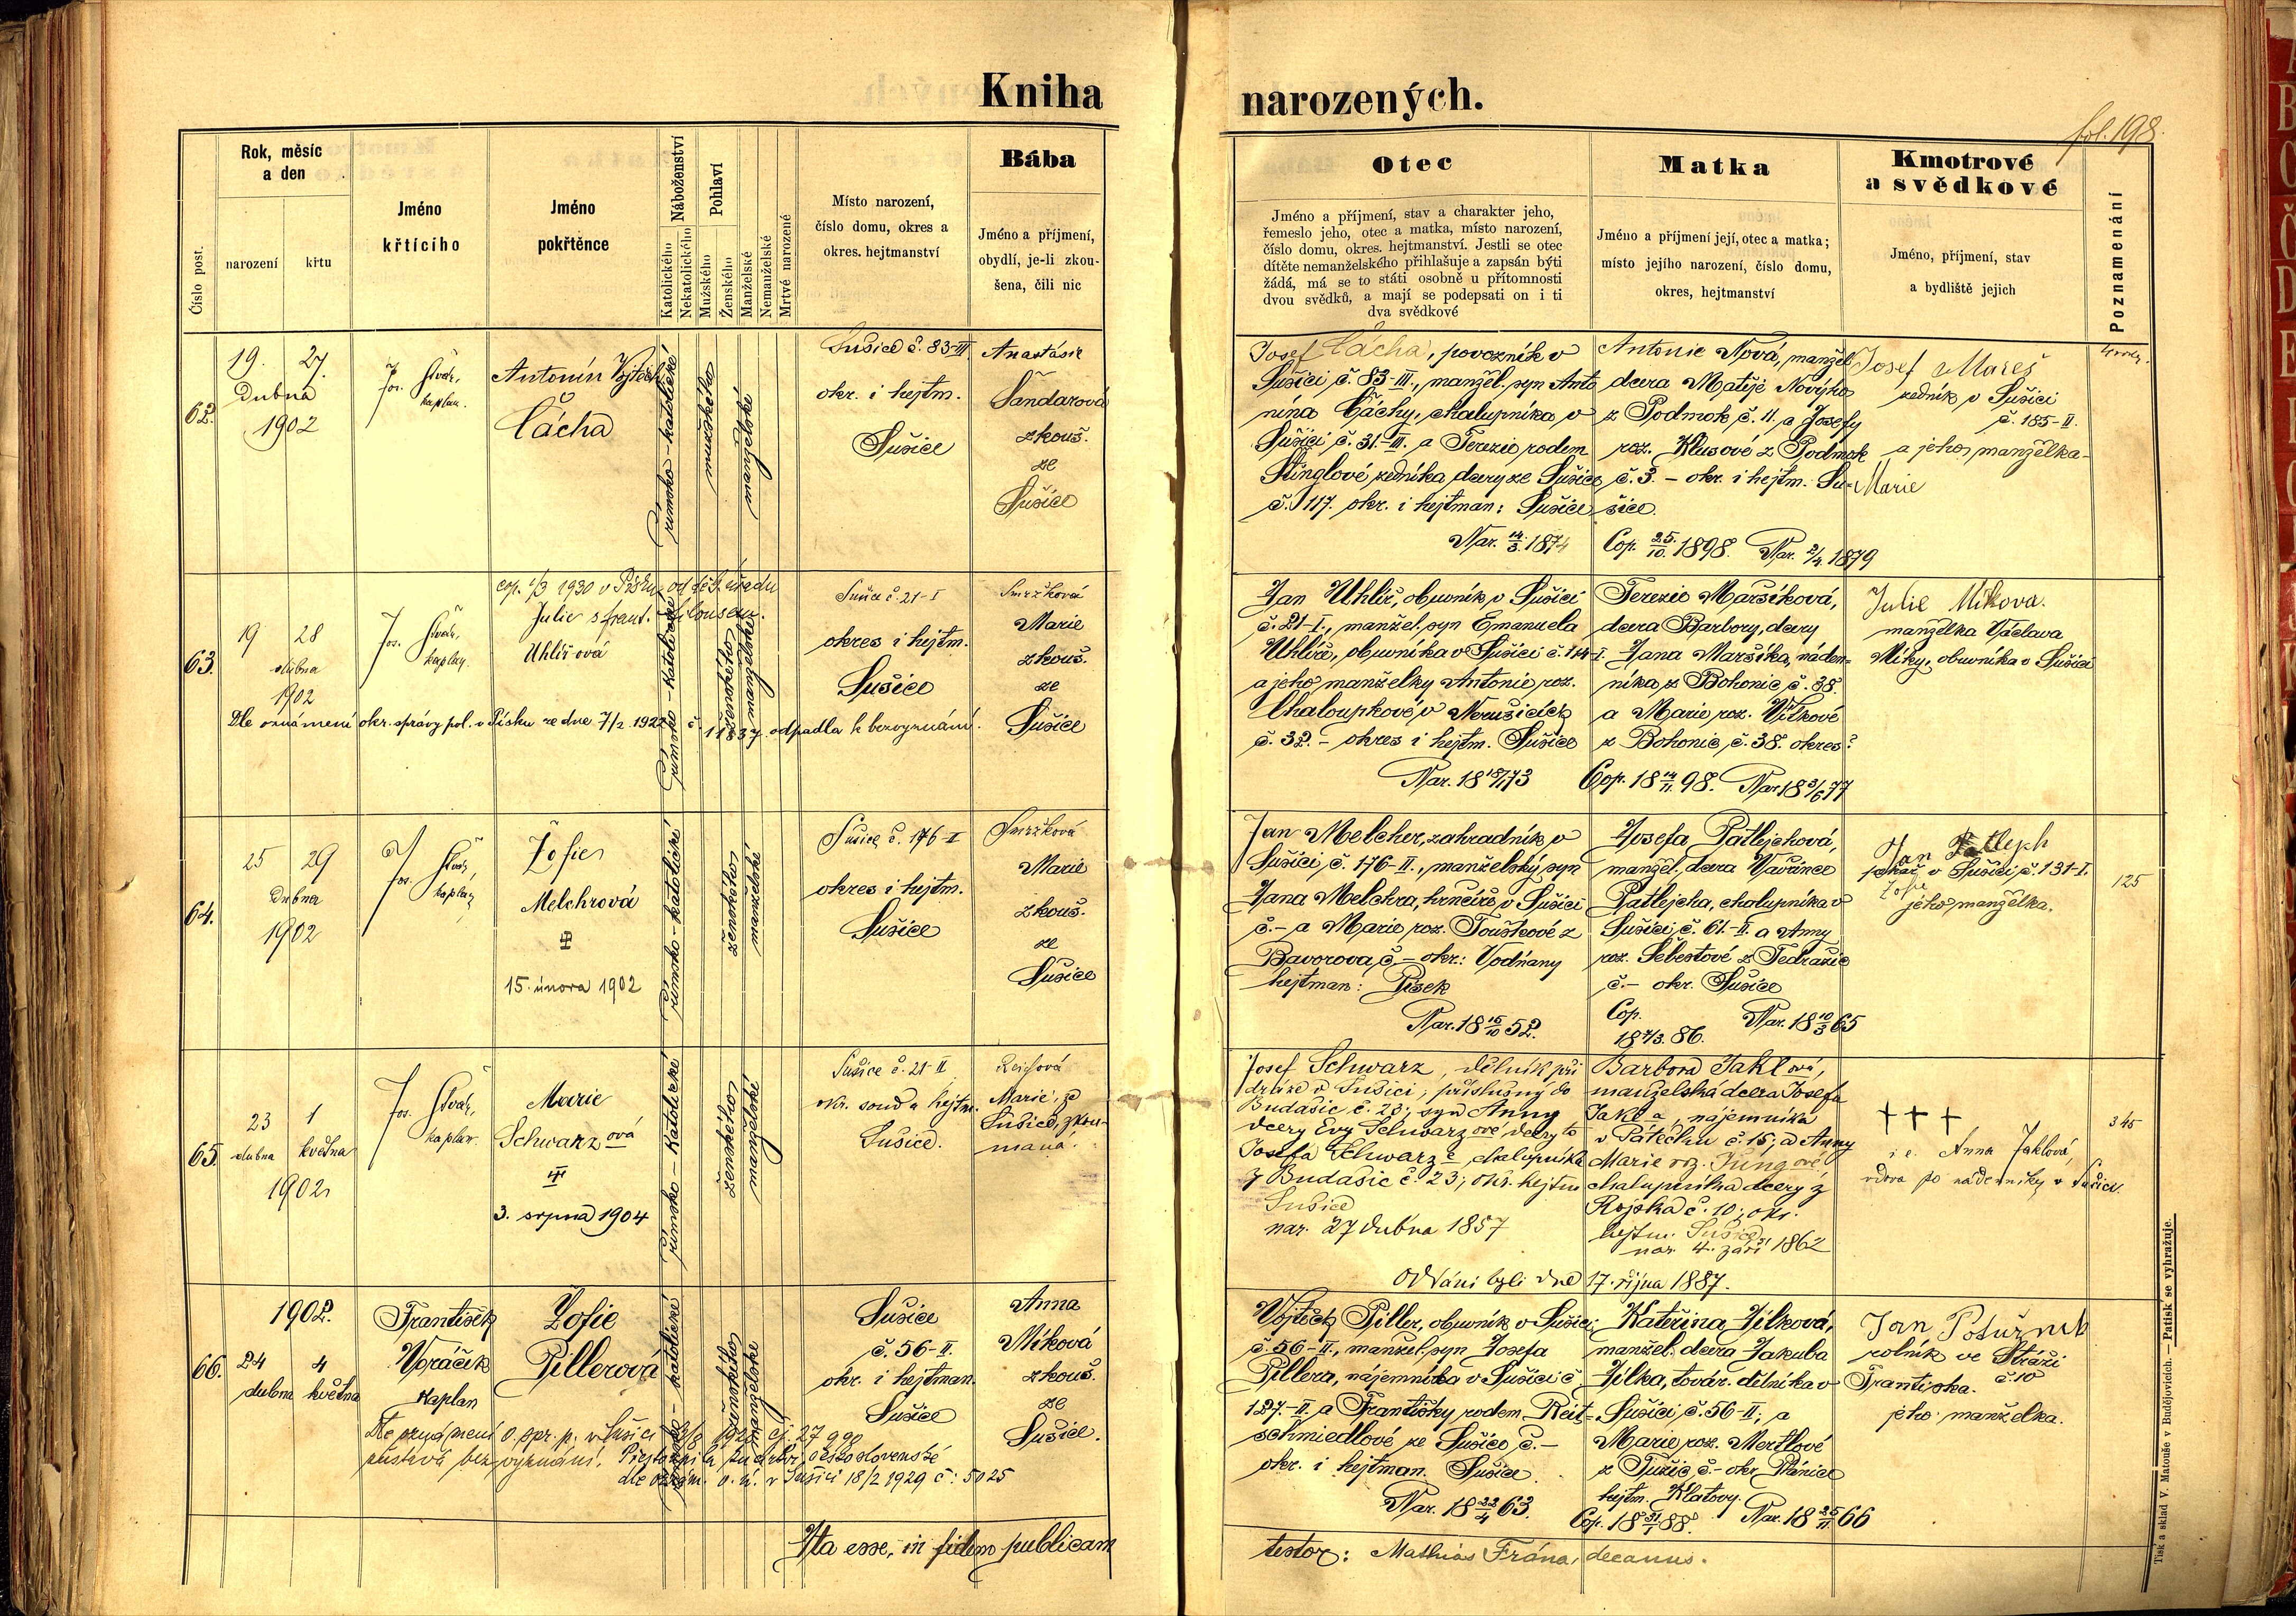 Kniha
narozených.
fol. 198.
Číslo post.
Rok, měsíc
a den
narození
křtu
Jméno
křtícího
Jméno
pokřtěnce
Náboženství
Katolického
Nekatolického
Pohlaví
Mužského
Ženského
Manželské
Nemanželské
Mrtvé narozené
Místo narození,
číslo domu, okres a
okres. hejtmanství
Bába
Jméno a příjmení,
obydlí, je-li zkou-
šena, čili nic
Otec
Jméno a příjmení, stav a charakter jeho,
řemeslo jeho, otec a matka, místo narození,
číslo domu, okres. hejtmanství. Jestli se otec
dítěte nemanželského přihlašuje a zapsán býti
žádá, má se to státi osobně u přítomnosti
dvou svědků, a mají se podepsati on i ti
dva svědkové
Matka
Jméno a příjmení její, otec a matka;
místo jejího narození, číslo domu,
okres, hejtmanství
Kmotrové
a svědkové
Jméno, příjmení, stav
a bydliště jejich
Poznamenání
62.
19. 27.
Dubna
1902
Jos.
kaplan.
Antonín Vojtěch
Čácha
římsko-katolické
mužského
manželské
Sušice č. 83-III.
okr. i hejtm.
Sušice
Anastásie
Šandarová
zkouš.
ze
Sušice
Josef Čácha, povozník v
Sušici č. 83-III., manžel. syn Anto
nína Čáchy, chalupníka v
Sušici č. 31.-III. a Terezie rodem
Stinglové, zedníka dcery ze Sušice
č. 117. okr. i hejtman: Sušice
Nar. 14/3. 1874
Antonie Nová, manžel.
dcera Matěje Nového
z Podmok č. 11. a Josefy
roz. Klusové z Podmok
č. 3. - okr. i hejtm. Su-
šice.
Cop. 25./10. 1898. Nar. 2/4. 1879
Josef Mareš
zedník v Sušici
č. 185-II.
a jeho manželka
Marie
63.
19 28
dubna
1902
Jos.
kaplan.
cop. 1/3 1930 v Písku od
Julie s frant.
Uhlířová
římsko-katolické
ženského
manželské
Dle oznámení okr. správy pol. v Písku ze dne 7/2. 1922 č. 11837 odpadla k bezvyznání.
Sušice č. 21-I
okres i hejtm.
Sušice
Smržková
Marie
zkouš.
ze
Sušice
Jan Uhlíř, obuvník v Sušici
č. 21-I., manžel. syn Emanuela
Uhlíře, obuvníka v Sušici č. 114-I.
a jeho manželky Antonie roz.
Chaloupkové v Nezušicích
č. 32. - okres i hejtm. Sušice
Nar. 18 18/1 73
Terezie Maršíková,
dcera Barbory, dcery
Jana Maršíka, náden-
níka z Bohonic č. 38.
a Marie roz. Vítkové
z Bohonic č. 38. okres?
Cop. 18 14/11 98. Nar. 18 3/6 77
Julie Míkova.
manželka Václava
Míky, obuvníka v Sušici
64.
25 29
Dubna
1902
Jos.
kaplan
Žofie
Melchrová
15. února 1902
římsko-katolické
ženského
manželské
Sušice č. 176-I
okres i hejtm.
Sušice
Smržková
Marie
zkouš.
ze
Sušice
Jan Melcher, zahradník v
Sušici, č. 176-II., manželský syn
Jana Melchra, hrnčíře v Sušici
č.- a Marie roz. Touškové z
Bavorova, č.- okr.: Vodňany
hejtman: Písek
Nar. 18 15/10 52.
Josefa Patlejchová,
manžel. dcera Vavřince
Patlejcha, chalupníka v
Sušici, č. 61.-II. a Anny
roz. Šebestové z Tedražic
č.- okr. Sušice
Cop.
18 7/3. 86. Nar. 18 10/3 65
Jan Patlejch
pekař v Sušici č. 131-I.
Žofie
jeho manželka.
125
65.
23 1
dubna května
1902
Jos.
kaplan.
Marie
Schwarzová
3. srpna 1904
římsko-katolické
ženského
manželské
Sušice č. 21-II
okr. soud a hejtm.
Sušice.
Reisová
Marie, ze
Sušice, zkou-
maná.
Josef Schwarz, dělník při
dráze v Sušici, příslušný do
Budašic č. 23; syn Anny
dcery Evy Schwarzové dcery to
Josefa Schwarze, chalupníka
z Budašic č. 23; okr. hejtm
Sušice
nar. 27 dubna 1857
Barbora Jaklová,
manželská dcera Josefa
Jakla, nájemníka
v Pátečku č. 15; a Anny
Marie roz. Jungové
chalupníka dcery z
Rojska č. 10; okr.
hejtm. Sušice
nar. 4. září 1862
Oddáni byli dne 17. října 1887.
+ + +
i. e. Anna Jaklová,
vdova po nádeníku v Sušici.
345
66.
1902.
24 4
dubna května
František
Voráček
Kaplan
Žofie
Pillerová
římsko-katolické
ženského
manželské
Sušice
č. 56-II.
okr. i hejtman.
Sušice
Anna
Míková
zkouš.
ze
Sušice.
Dle oznámení o. spr. p. v Sušici
zůstává bez vyznání. Přestoupila
československé
dle oznám. o. ú. v Sušici 18/2 1929 č: 5025
Vojtěch Piller, obuvník v Sušici
č. 56-II., manžel. syn Josefa
Pillera, nájemníka v Sušici č
127.-II. a Františky rodem Reit-
schmiedlové ze Sušice č.-
okr. i hejtman. Sušice.
Nar. 18 22/4 63.
Kateřina Jílková,
manžel. dcera Jakuba
Jílka, továr. dělníka v
Sušici č. 56-II; a
Marie roz. Mertlové
z Tužic, č.- okr. Plánice
hejtm. Klatovy.
Cop. 18 31/1 88. Nar. 18 25/11 66
Jan Poturnak
rolník ve Stráži
č. 10
Františka.
jeho manželka.
Ita esse, in fidem publicam
testor: Mathias Frána, decanus.
Tisk a sklad V. Matouše v Budějovicích. — Patisk se vyhražuje.